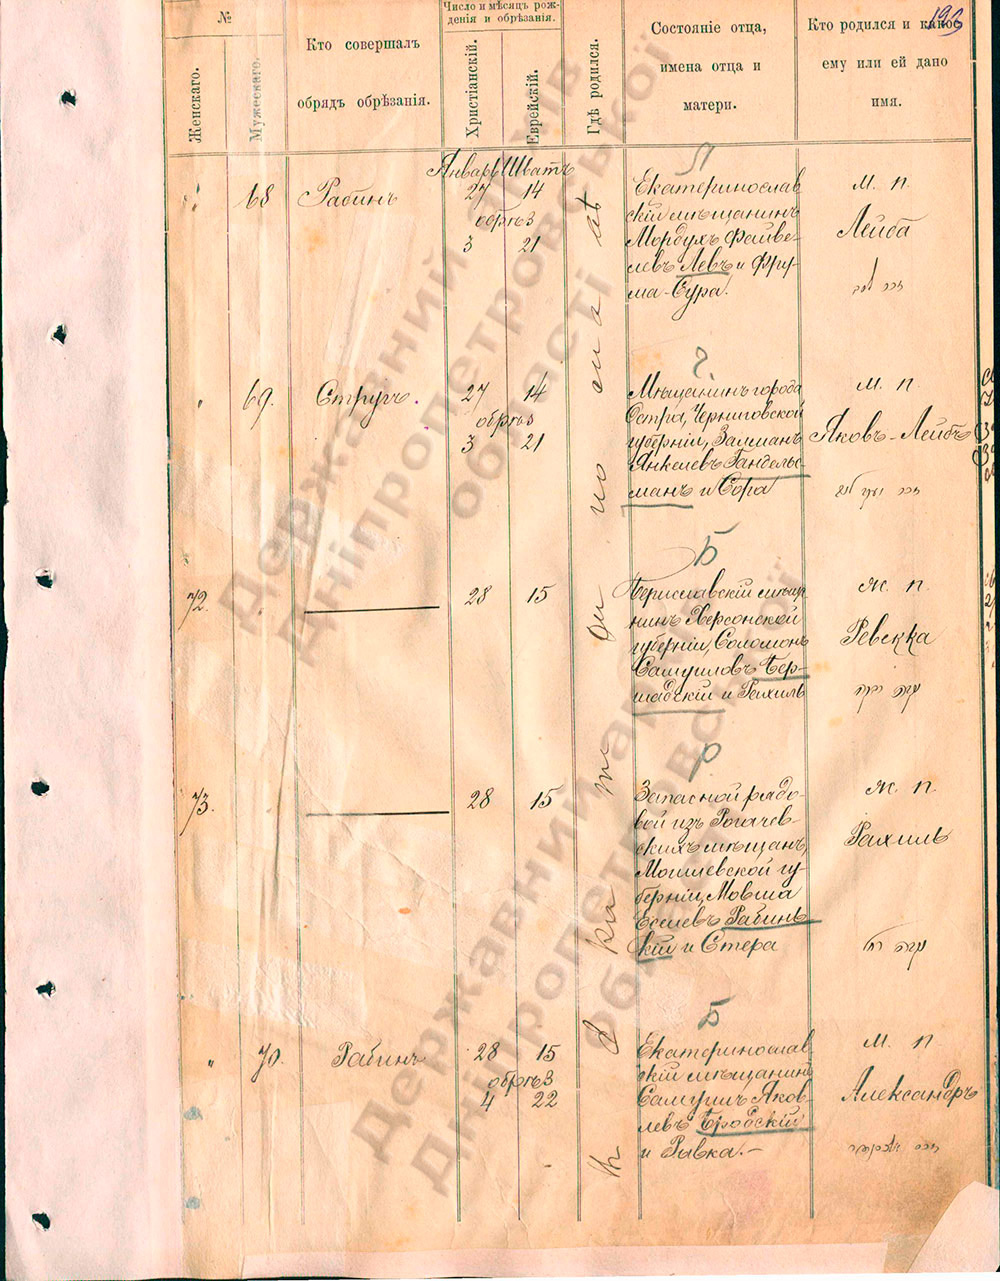 193
№
Женскаго.
Мужескаго.
Кто совершалъ
обрядъ обрѣзанія.
Число и мѣсяцъ рож-
денія и обрѣзанія.
Христіанскій.
Еврейскій.
Гдѣ родился.
Состояніе отца,
имена отца и
матери.
Кто родился и какое
ему или ей дано
имя.
Январь Шватъ
" 68 Рабинъ
27 14
обрѣз
3 21
Л
Екатеринослав
скій мѣщанинъ
Мордухъ Файве-
левъ Левъ и Фру-
ма-Сура.
м. п.
Лейба
" 69. Стругъ.
27 14
обрѣз
3 21
Г.
Мѣщанинъ города
Остра, Черниговской
губерніи, Залманъ
Янкелевъ Гандельс-
манъ и Сора
м. п.
Яковъ-Лейбъ
72. "
28 15
Б
Бериславскій мѣща
нинъ Херсонской
губерніи, Соломонъ
Самуиловъ Бер-
шадскій и Рахиль
ж. п.
Ревекка
73.
28 15
Р
Запасной рядо-
вой изъ Рогачев-
скихъ мѣщанъ,
Могилевской гу-
берніи, Мовша
Еселевъ Рабинъ
кій и Стера
ж. п.
Рахиль
" 70. Рабинъ
28 15
обрѣз
4 22
Б
Екатеринослав-
скій мѣщанинъ
Самуилъ Яков-
левъ Бродскій
и Ривка.-
м. п.
Александръ
Державний архів
Дніпропетровської
області
Державний архів
Дніпропетровської
області